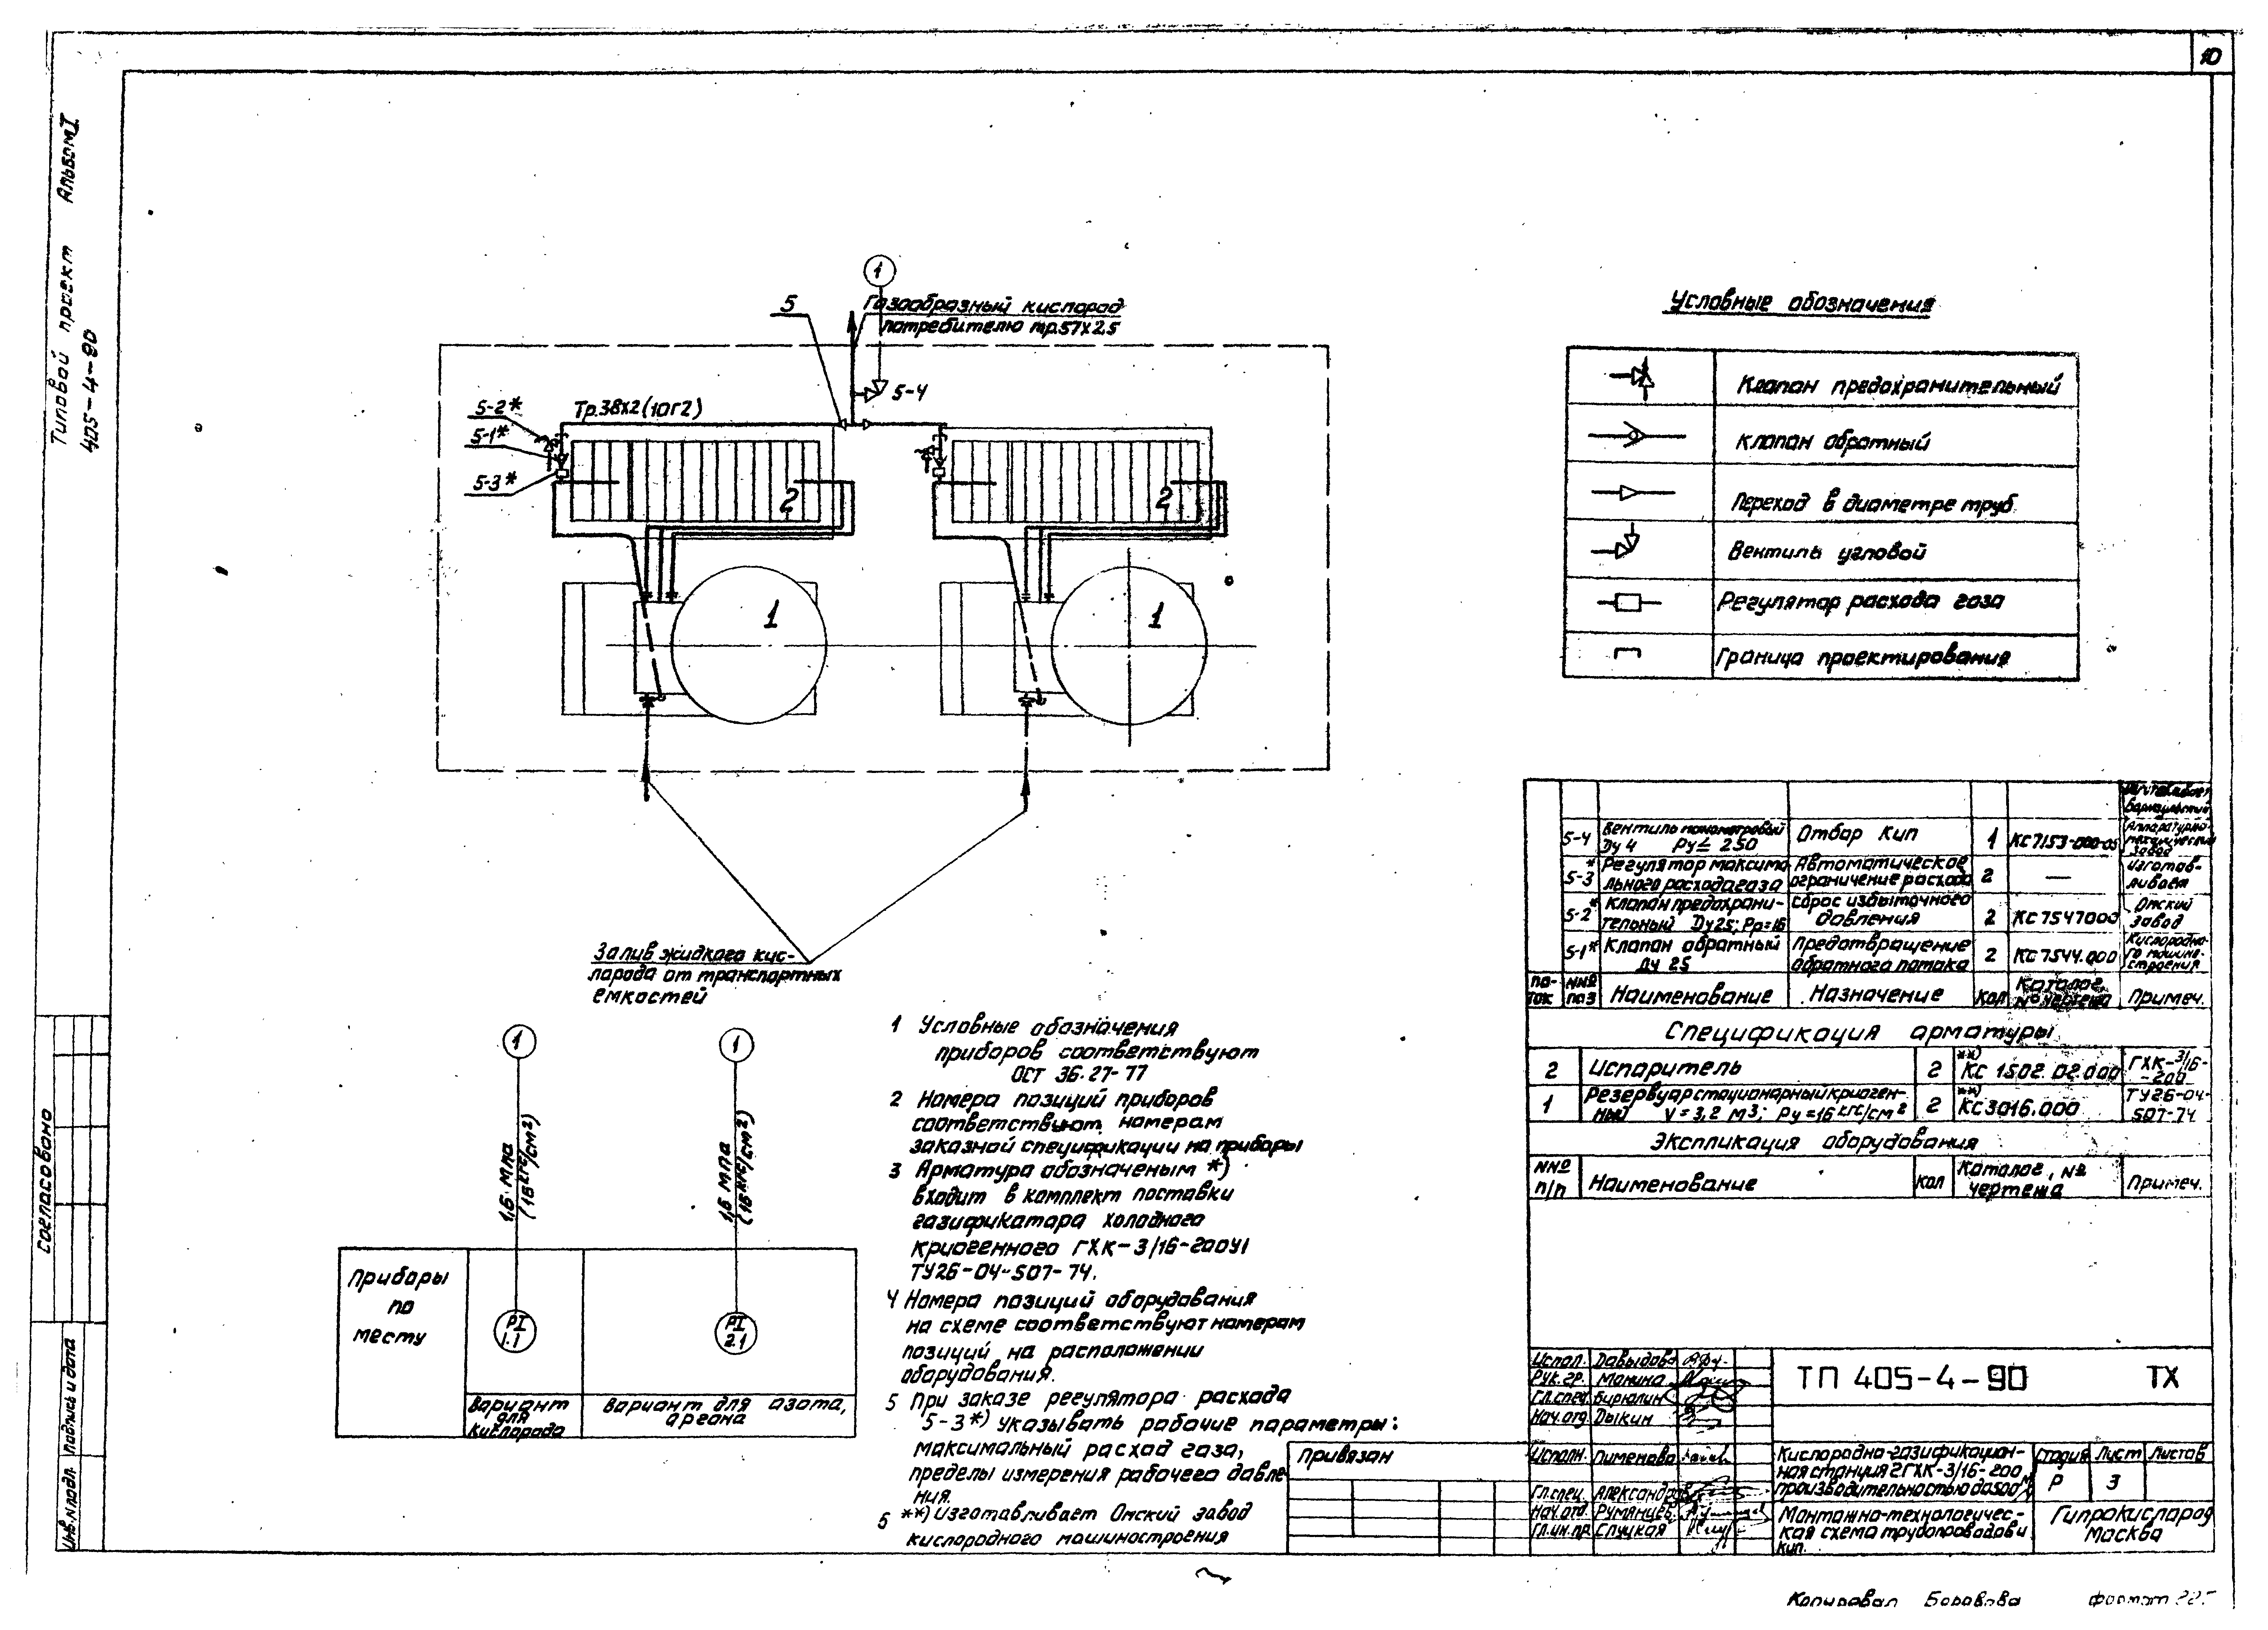 10
Типовой проект Альбом I
405-4-90
1
5
Газообразный кислород
потребителю тр.57х2.5
5-4
Тр.38х2(10Г2)
5-2*
5-1*
5-3*
2
2
1
1
Залив жидкого кис-
лорода от транспортных
емкостей
Условные обозначения
Клапан предохранительный
Клапан обратный
Переход в диаметре труб
Вентиль угловой
Регулятор расхода газа
Граница проектирования
1
1
1,6 МПа
(16кгс/см²)
1,6 МПа
(16кгс/см²)
Приборы
по
месту
PI
1.1
PI
2.1
Вариант
для
кислорода
Вариант для азота,
аргона
1 Условные обозначения
приборов соответствуют
ОСТ 36.27-77
2 Номера позиций приборов
соответствуют номерам
заказной спецификации на приборы
3 Арматура обозначеным *)
входит в комплект поставки
газификатора холодного
криогенного ГХК-3/16-200У1
ТУ26-04-507-74.
4 Номера позиций оборудования
на схеме соответствуют номерам
позиций на расположении
оборудования.
5 При заказе регулятора расхода
5-3*) указывать рабочие параметры:
максимальный расход газа,
пределы измерения рабочего давле-
ния.
6 **) Изготавливает Омский завод
кислородного машиностроения
5-4 Вентиль манометровый Ду 4 Ру≤ 250 Отбор Кип 1 КС7153-000-05 Барнаульский Аппаратурно-механический завод
5-3* Регулятор максимального расхода газа Автоматическое ограничение расхода 2 — Изготав-ливает
5-2* Клапан предохрани-тельный Ду25; Рр=16 Сброс избыточного давления 2 КС7547000 Омский завод
5-1* Клапан обратный Ду 25 Предотвращение обратного потока 2 КС7544.000 Кислородно-го машино-строения
По-ток №№ поз Наименование Назначение Кол Каталог, № чертежа Примеч.
Спецификация арматуры
2 Испаритель 2 **) КС 1502.02.000 ГХК-3/16--200
1 Резервуар стационарный криоген-ный V=3,2 м3; Ру=16 кгс/см² 2 **) КС3016.000 ТУ26-04-507-74
Экспликация оборудования
№№ п/п Наименование Кол Каталог, № чертежа Примеч.
Испол. Давыдова
Рук.гр. Манина
Гл.спец Бирюлин
Нач.отд. Дыкин
ТП 405-4-90 ТХ
Привязан
Исполн. Пименова
Гл.спец. Александров
Нач.отд. Румянцев
Гл.ин.пр. Слуцкая
Кислородно-газификацион-
ная станция 2ГХК-3/16-200
производительностью до 500
Стадия Лист Листов
Р 3
Монтажно-технологичес-
кая схема трубопроводов и
кип.
Гипрокислород
Москва
Согласовано
Инв.№ подл. Подпись и дата
Копировал Боровова Формат